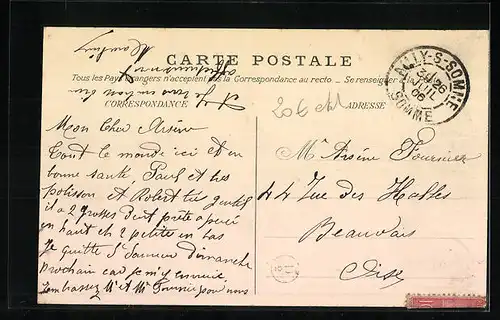 CARTE POSTALE
Tous les Pays étrangers n'acceptent pas la Correspondance au recto. — Se renseigner
CORRESPONDANCE
ADRESSE
AILLY-S-SOMME
26
JUIL
06
SOMME
Mon Cher Arsène
Tout le monde ici est en
bonne santé Paul est très
polisson et Robert très gentil
il a 2 grosses dent prête a percé
en haut et 2 petite en bas
Je quitte St Sauveur dimanche
prochain car je m'y ennuie
embassez Mr et Me pour nous
Mr Arsène Fournier
44 Rue des Halles
Beauvais
Oise